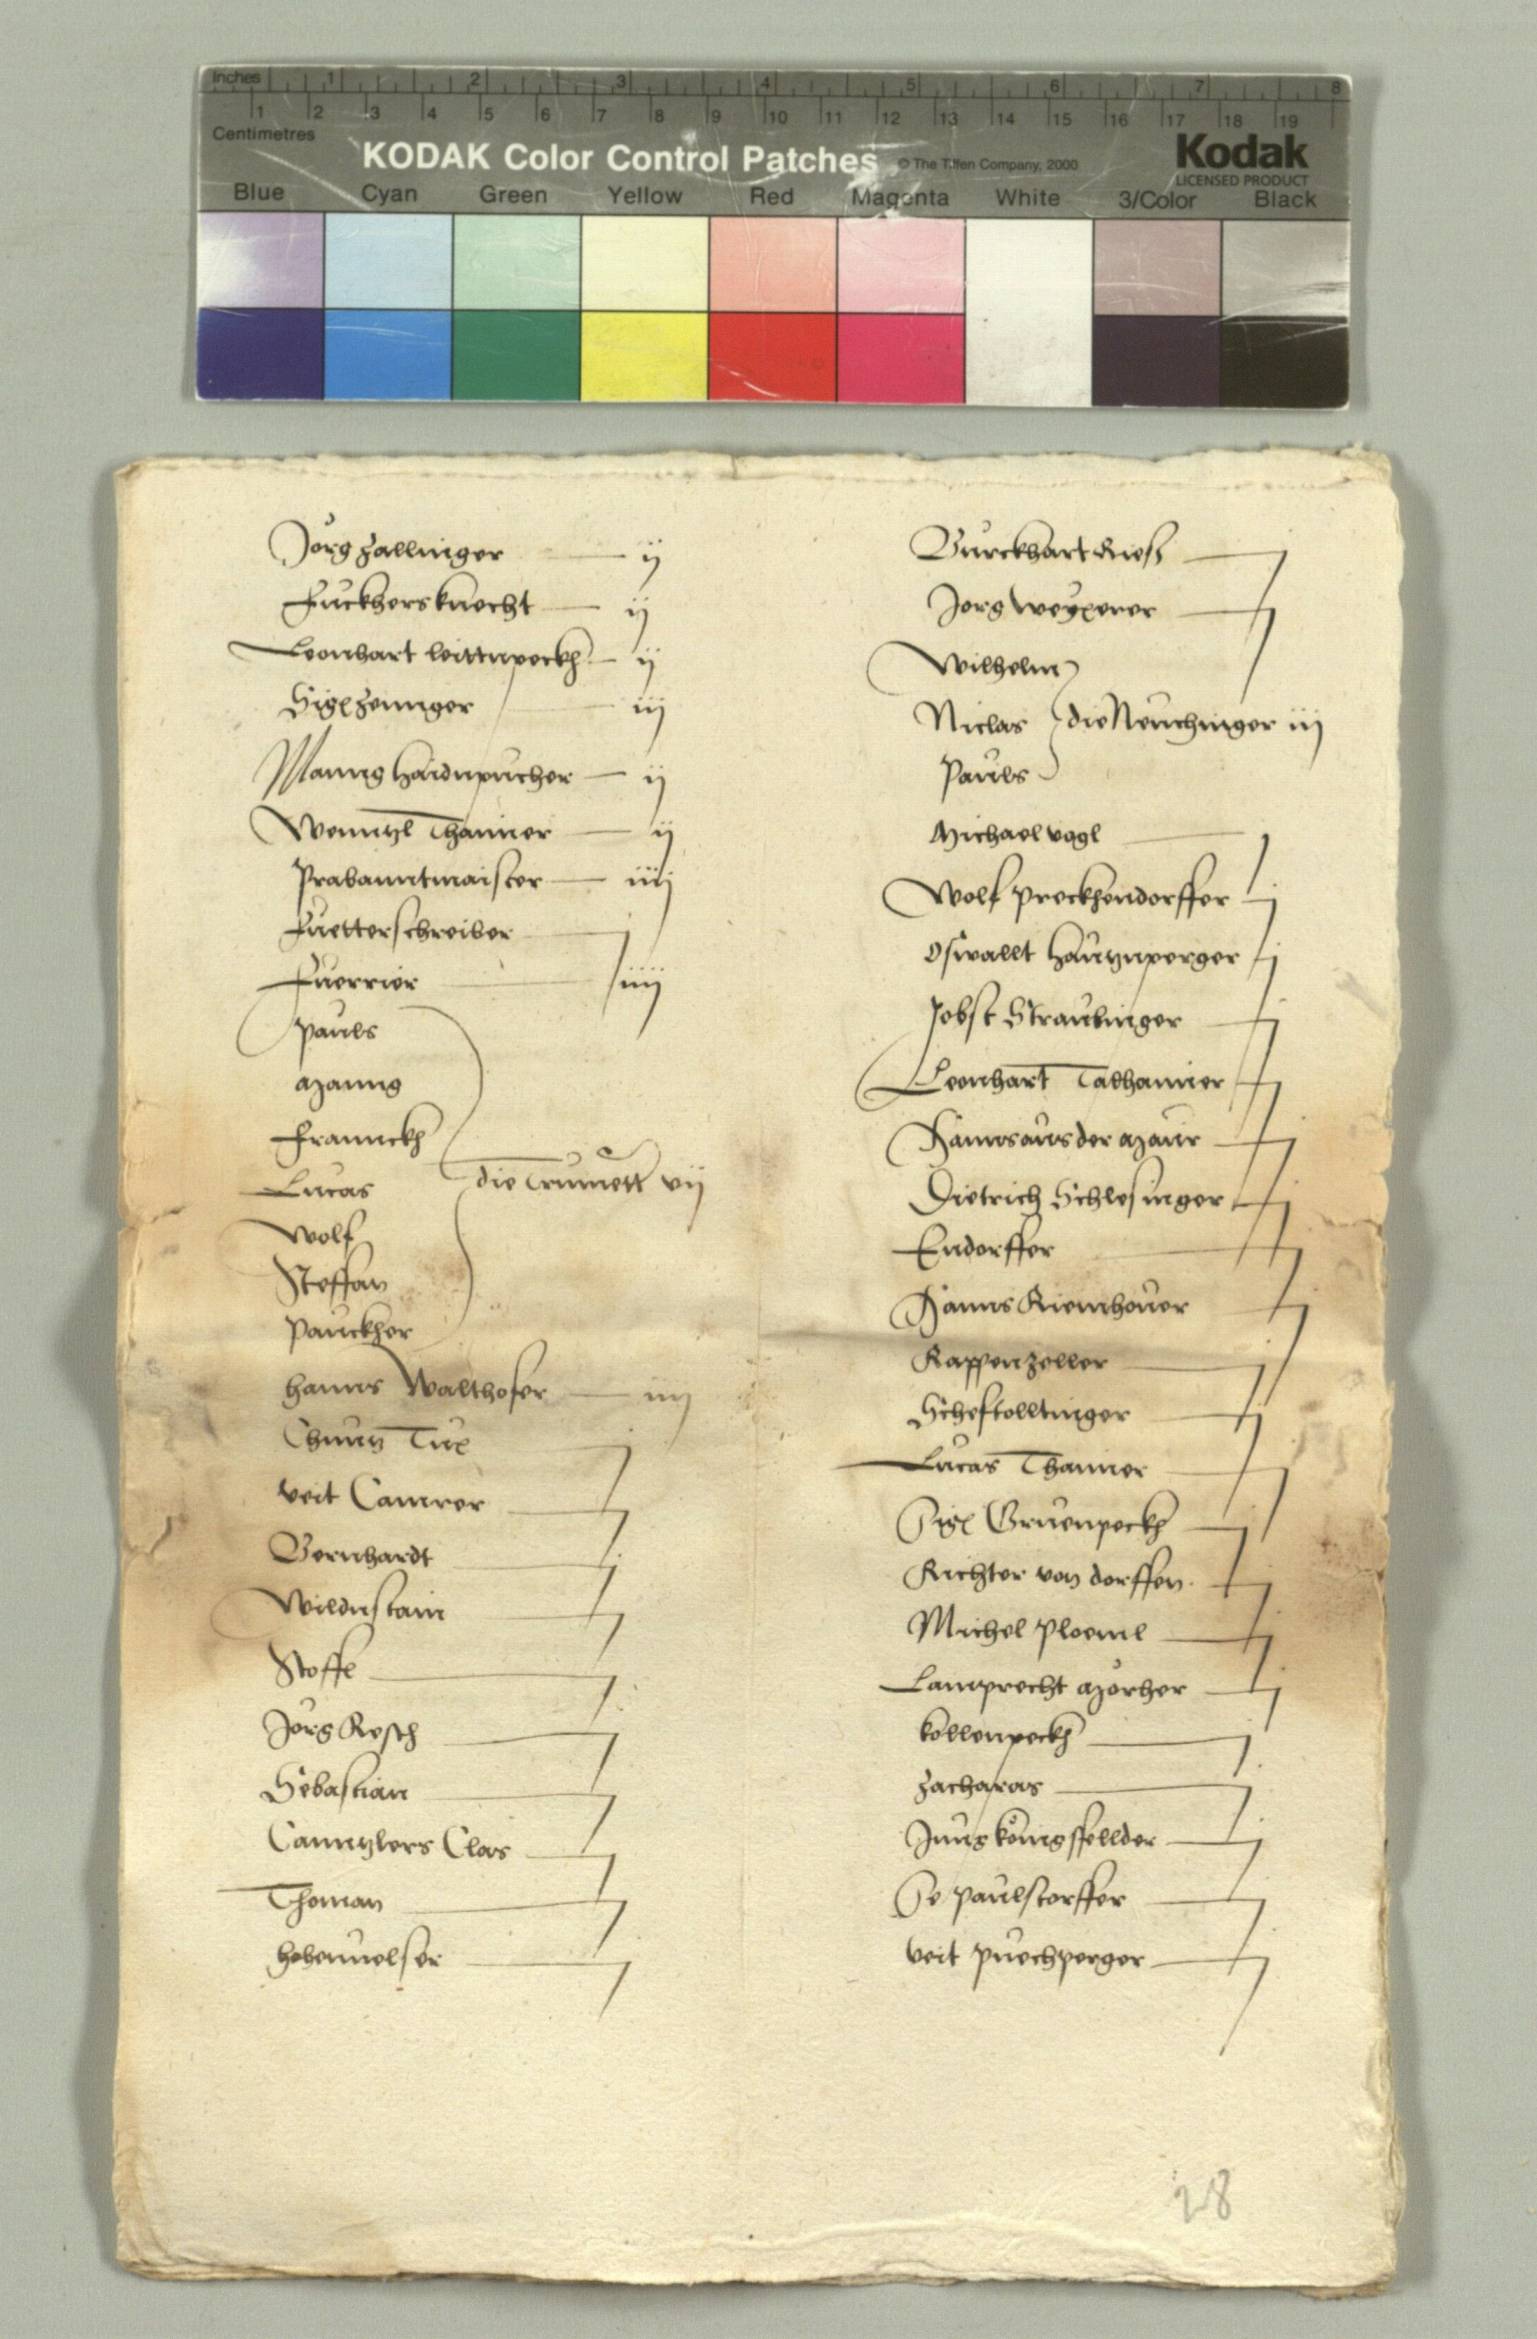 Inches 1 2 3 4 5 6 7 8
1 2 3 4 5 6 7 8 9 10 11 12 13 14 15 16 17 18 19
Centimetres
KODAK Color Control Patches © The Tiffen Company, 2000 Kodak
LICENSED PRODUCT
Blue Cyan Green Yellow Red Magenta White 3/Color Black
Jörg Zallinger ij
Fuckhers knecht ij
Leonhart Wittnpeckh ij
Sigl Zenngerr iij
Manng Haidnpucher ij
Wenntzl Thanner ij
Prabanntmaister iiij
Fuetterschreiber j
Fuerrier iiij
Pauls
Manng
Frannckh
Lucas die Trumett vij
Wolf
Steffan
Pauckher
Hanns Walthofer iiij
Chuntz Tux j
Veit Camrer j
Bernhardt j
Wildnstain j
Stoffl j
Jörg Resch j
Sebastian j
Canntzlers Clas j
Thoman j
Hohenuelser j
Burckhart Riess j
Jorg Weyxerer j
Wilhelm
Niclas die Neuchinger iij
Pauls
Michael Vogl j
Wolf Preckhendorffer j
Oswallt Hautznperger j
Jobst Straubinger j
Leonhart Talhaimer j
Hanns aus der Maur j
Dietrich Schlesinger j
Endorffer j
Hanns Kiemhouer j
Kappenzeller j
Scheftolltinger j
Lucas Thanner j
Sigl Gruenpeckh j
Richter von Dorffen j
Michel Ploeml j
Lamprecht Mörher j
Kollenpeckh j
Zacharas j
Jung Köngsfellder j
Se Paulstorffer j
Veit Puechperger j
28